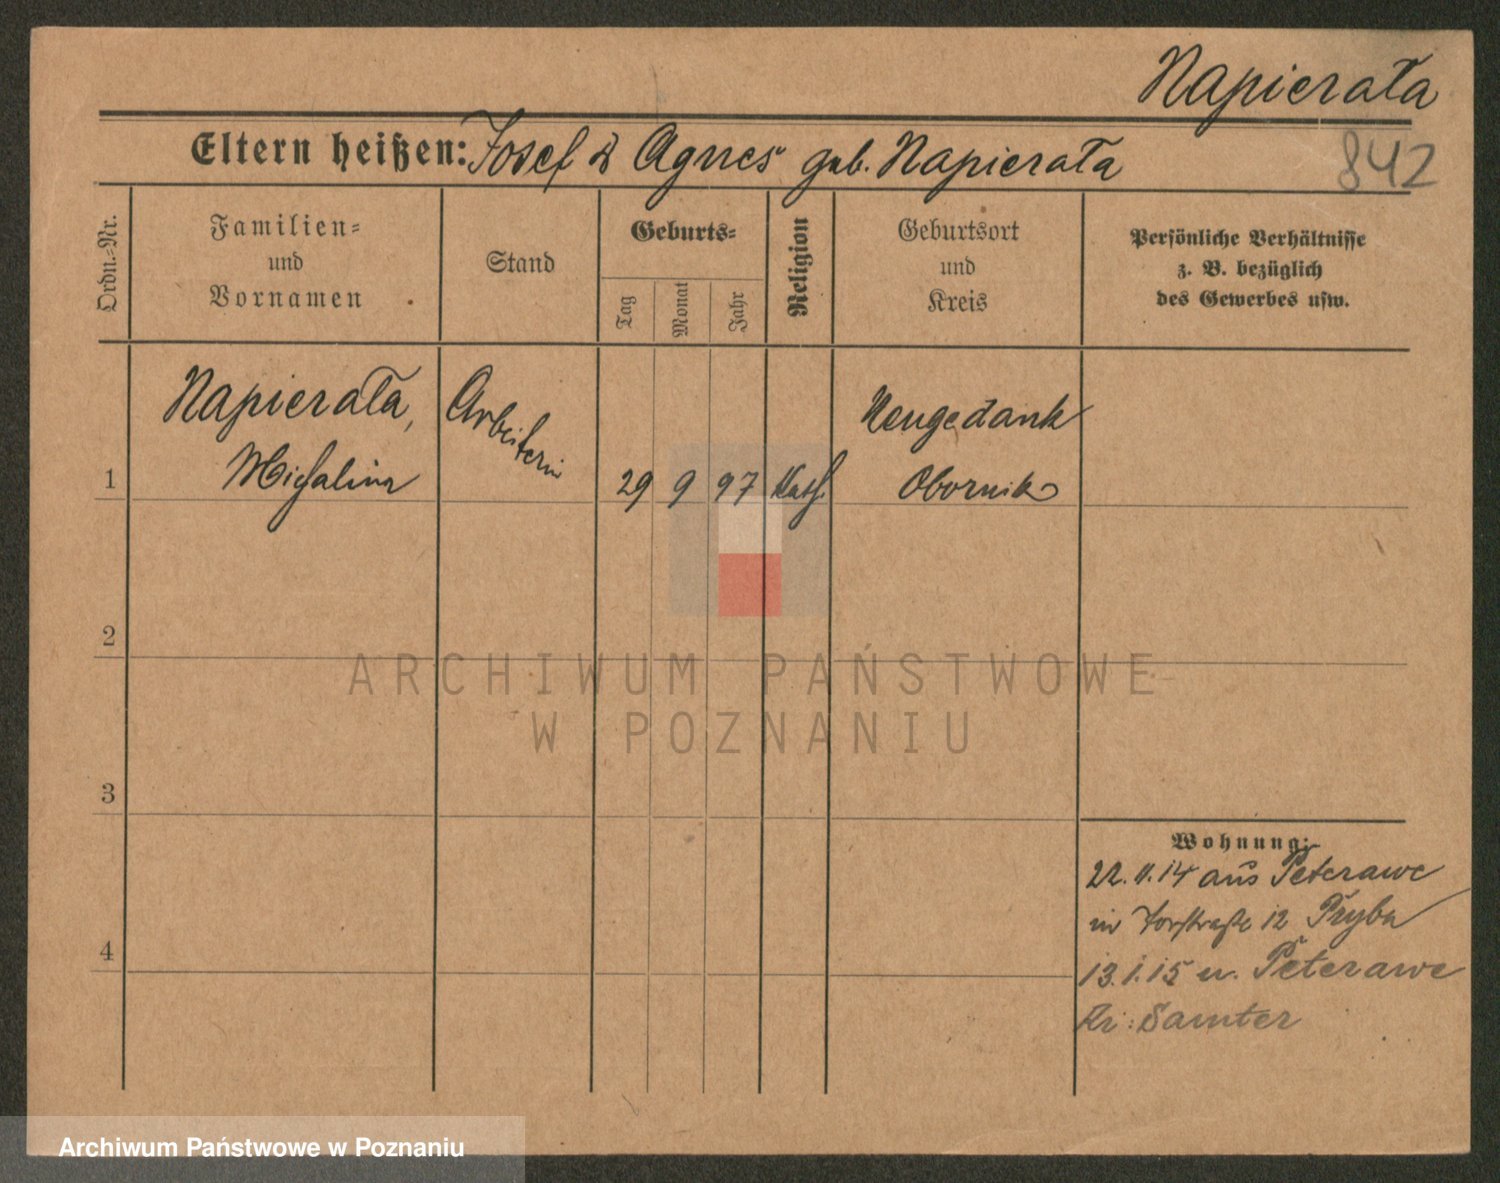 Napierała
Eltern heißen: Josef & Agnes geb. Napierała
842
Ordn.-Nr.
Familien-
und
Vornamen
Stand
Geburts-
Tag
Monat
Jahr
Religion
Geburtsort
und
Kreis
Persönliche Verhältnisse
z. B. bezüglich
des Gewerbes usw.
Napierała,
Arbeiterin
Neugedank
1 Michalina 29 9 97 Kath. Obornik
2
3
4
Wohnung:
22.11.14 aus Peterawe
in Torstraße 12
13.1.15 n. Peterawe
Kr: Samter
ARCHIWUM PAŃSTWOWE
W POZNANIU
Archiwum Państwowe w Poznaniu